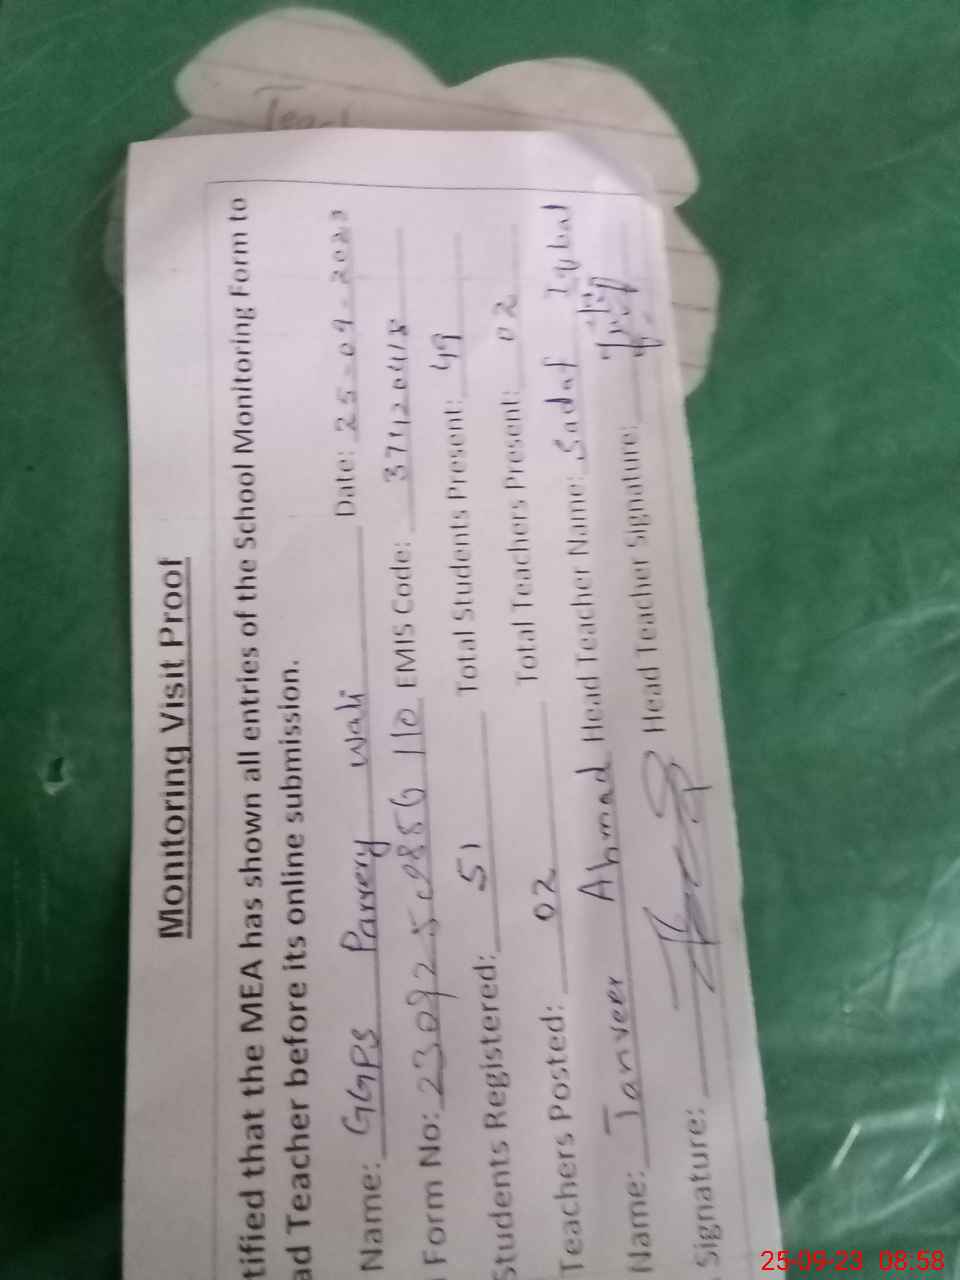 Teach
Monitoring Visit Proof
tified that the MEA has shown all entries of the School Monitoring Form to
ad Teacher before its online submission.
Name: GGPS Parrery Wali Date: 25-09-2023
Form No: 230925 EMIS Code: 37420418
Students Registered: 51 Total Students Present: 49
Teachers Posted: 02 Total Teachers Present: 02
Name: Tanveer Ahmad Head Teacher Name: Sadaf Iqbal
Signature: Head Teacher Signature:
25-09-23 08:58